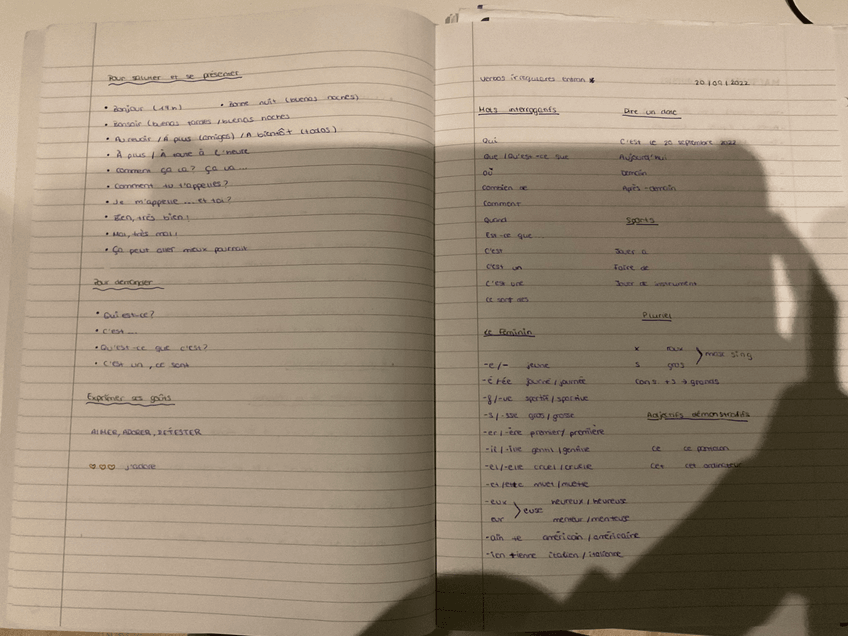 Pour saluer et se présenter
• Bonjour
• Bonne nuit (buenas noches)
• Bonsoir (buenas tardes / buenas noches
• Au revoir / À plus (amigos) / A bientôt (todos)
• À plus / À toute à l'heure
• Comment ça va? Ça va...
• Comment tu t'appelles?
• Je m'appelle ... et toi?
• Bien, très bien!
• Mal, très mal!
• Ça peut aller mieux pourrait
Pour demander
• Qui est-ce?
• C'est ...
• Qu'est-ce que c'est?
• C'est un, ce sont
Exprimer ses goûts
AIMER, ADORER, DÉTESTER
♡♡♡ J'adore
verbos irregulares entran *
20/09/2022
Mots interrogatifs
Dire un date
Qui
Que / Qu'est-ce que
où
Combien de
Comment
Quand
Est-ce que
C'est
C'est un
C'est une
Ce sont des
C'est le 20 septembre 2022
Aujourd'hui
Demain
Après-demain
Sports
Jouer à
Faire de
Jouer de instrument
Pluriel
x roux
s gros
> masc sing
cons. +s → grands
Le Féminin
-e/- jeune
-é/ée journé/journée
-f/-ve sportif/sportive
-s/-sse gros/grosse
-er/-ère premier/première
-il/-ille gentil/gentille
-el/-elle cruel/cruelle
-et/ette muet/muette
-eux heureux/heureuse
> euse
eur menteur/menteuse
-ain +e américain/américaine
-ien +ienne italien/italienne
Adjectifs démonstratifs
ce ce pantalon
cet cet ordinateur